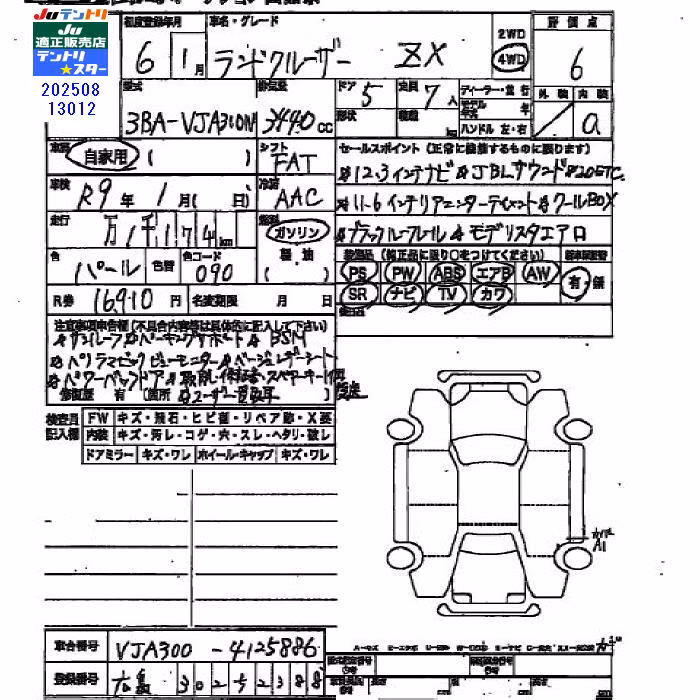 JUテントリ
JU
適正販売店
テントリ
★スター
202508
13012
初度登録年月
6 1月
車名・グレード
ランドクルーザー ZX
2WD
4WD
評価点
6
外装 内装
a
型式
3BA-VJA300W
排気量
3440 cc
ドア 5
形状
定員 7人
積載 kg
ディーラー・並行
モデル年式 年
ハンドル 左・右
車歴
自家用 ( )
シフト
FAT
車検
R9年 1月( 日)
冷房
AAC
走行
万1千174km
燃料
ガソリン
軽油
( )
色
パール
色替
色コード
090
R券 16910円
名変期限 月 日
セールスポイント (正常に機能するものに限ります)
12.3インチナビ JBLサウンド ETC
11.6インテリアエンターテイメント クールBOX
ブラックルーフレール モデリスタエアロ
装備品 (純正品に限り○をつけてください)
PS PW ABS エアB AW
SR ナビ TV カワ
有・無
注意事項申告欄(不具合内容等は具体的に記入して下さい)
サンルーフ パーキングサポート BSM
パノラミックビューモニター ベージュレザーシート
パワーバックドア 取説、保証書、スペアキー1個
修復歴 有 (箇所 ユーザー買取車 )
検査員記入欄
FW キズ・飛石・ヒビ割・リペア跡・X要
内装 キズ・汚レ・コゲ・穴・スレ・ヘタリ・破レ
ドアミラー キズ・ワレ ホイールキャップ キズ・ワレ
A1
車台番号 VJA300-4125886
登録番号 302 2388